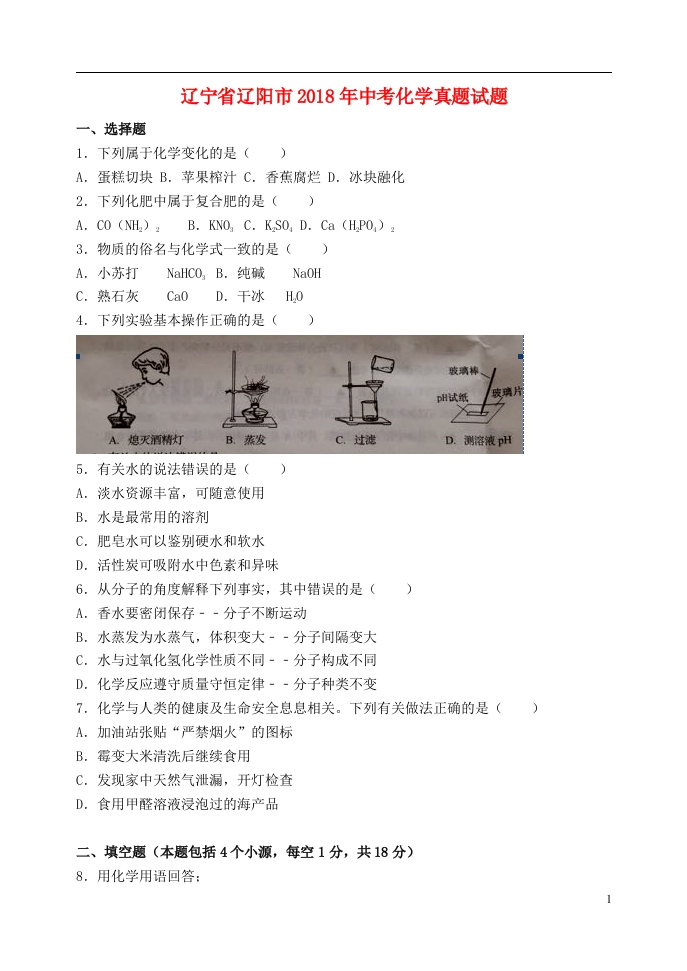 辽宁省辽阳市 2018 年中考化学真题试题
一、选择题
1．下列属于化学变化的是（　　）
A．蛋糕切块 B．苹果榨汁 C．香蕉腐烂 D．冰块融化
2．下列化肥中属于复合肥的是（　　）
A．CO（NH₂）₂　　B．KNO₃ C．K₂SO₄ D．Ca（H₂PO₄）₂
3．物质的俗名与化学式一致的是（　　）
A．小苏打　　NaHCO₃ B．纯碱　　NaOH
C．熟石灰　　CaO　　D．干冰　H₂O
4．下列实验基本操作正确的是（　　）
玻璃棒
pH试纸　玻璃片
A. 熄灭酒精灯　B. 蒸发　C. 过滤　D. 测溶液 pH
5．有关水的说法错误的是（　　）
A．淡水资源丰富，可随意使用
B．水是最常用的溶剂
C．肥皂水可以鉴别硬水和软水
D．活性炭可吸附水中色素和异味
6．从分子的角度解释下列事实，其中错误的是（　　）
A．香水要密闭保存﹣﹣分子不断运动
B．水蒸发为水蒸气，体积变大﹣﹣分子间隔变大
C．水与过氧化氢化学性质不同﹣﹣分子构成不同
D．化学反应遵守质量守恒定律﹣﹣分子种类不变
7．化学与人类的健康及生命安全息息相关。下列有关做法正确的是（　　）
A．加油站张贴“严禁烟火”的图标
B．霉变大米清洗后继续食用
C．发现家中天然气泄漏，开灯检查
D．食用甲醛溶液浸泡过的海产品
二、填空题（本题包括 4 个小源，每空 1 分，共 18 分）
8．用化学用语回答；
1